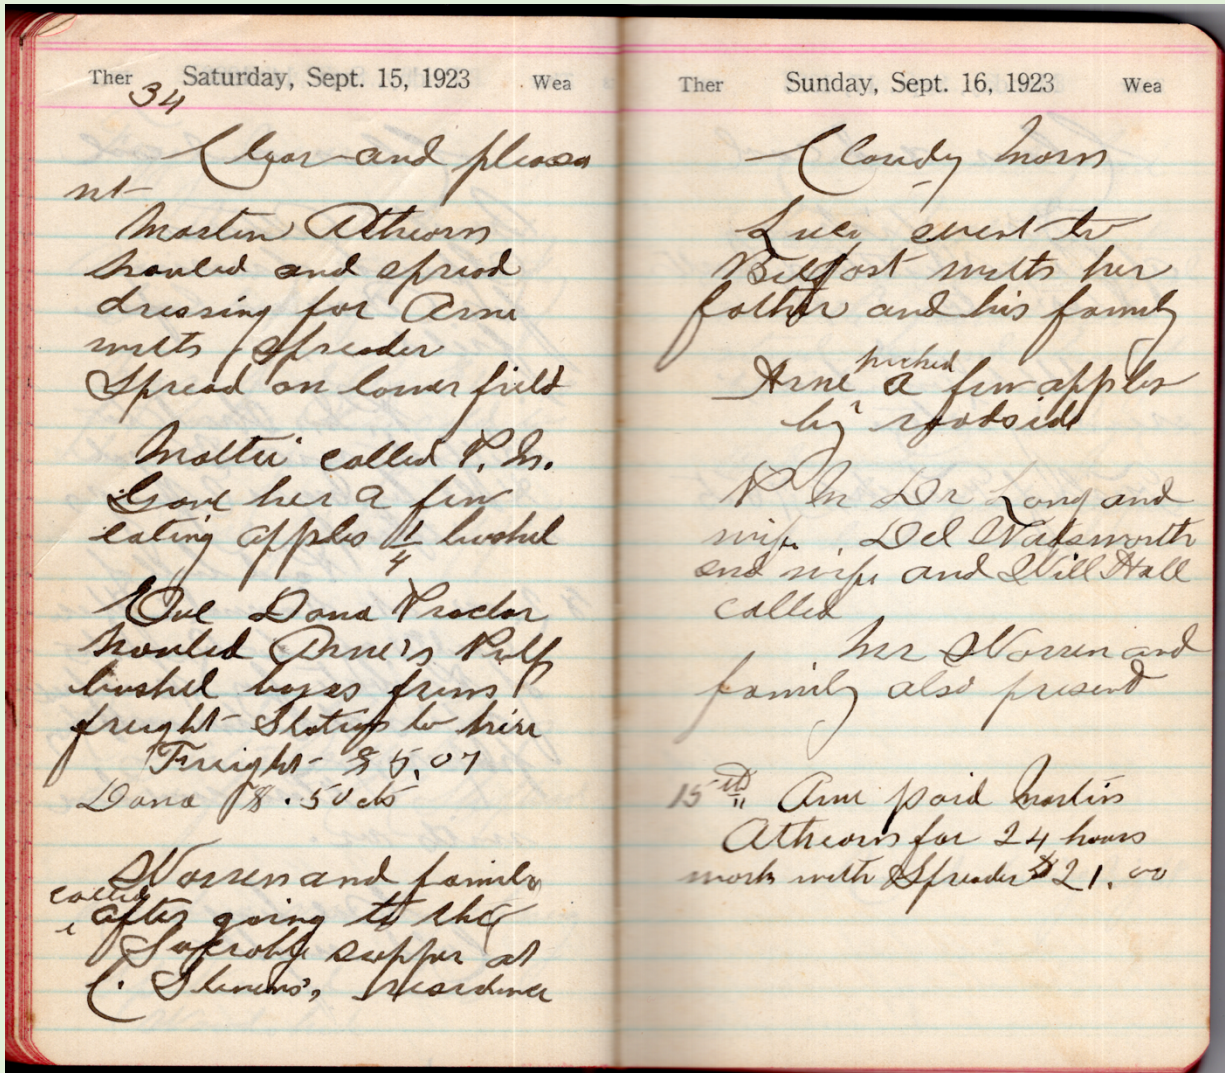 Ther Saturday, Sept. 15, 1923 Wea
34
Clear and pleasa
nt
Martin Athearn
hauled and spread
dressing for Arne
with spreader
Spread on lower field
Mattie called P.M.
Gave her a few
eating apples 1/4 bushel
Eve Dana Proctor
hauled Arne's Pulp
bushel boxes from
freight Station to hire
Freight $5.07
Dana $.50 cts
Warren and family
called
after going to the
supper at
C. Stevens', residence
Ther Sunday, Sept. 16, 1923 Wea
Cloudy Morn
Luci went to
Belfast with her
father and his family
picked
Arne a few apples
by roadside
P M Dr Long and
wife Del Wadsworth
and wife and Will Hall
called
Mr Warren and
family also present
15th Arne paid Martin
Athearn for 24 hours
work with Spreader $21.00